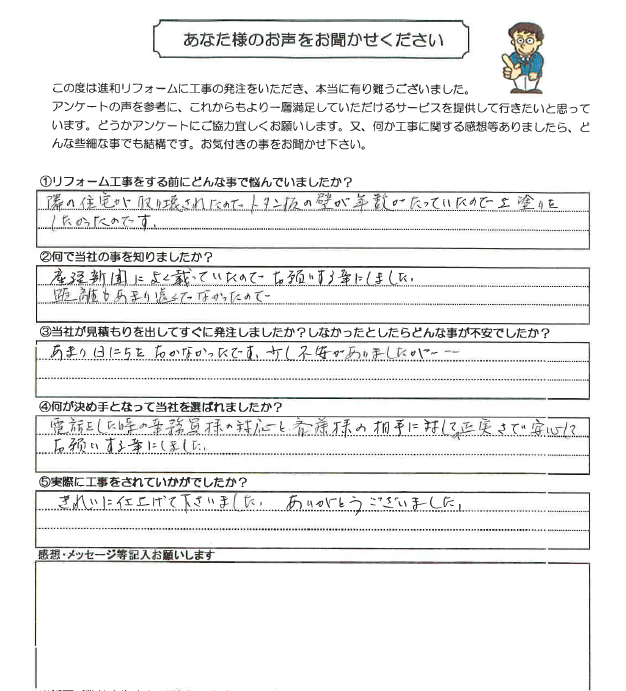 あなた様のお声をお聞かせください
この度は進和リフォームに工事の発注をいただき、本当に有り難うございました。
アンケートの声を参考に、これからもより一層満足していただけるサービスを提供して行きたいと思って
います。どうかアンケートにご協力宜しくお願いします。又、何か工事に関する感想等ありましたら、ど
んな些細な事でも結構です。お気付きの事をお聞かせ下さい。
①リフォーム工事をする前にどんな事で悩んでいましたか？
隣の住宅が取り壊されたので トタン板の壁が年数がたっていたので 上塗りを
したかったのです。
②何で当社の事を知りましたか？
産経新聞によく載っていたので お願いする事にしました。
距離もあまり遠くでなかったので
③当社が見積もりを出してすぐに発注しましたか？しなかったとしたらどんな事が不安でしたか？
あまり日にちをおかなかったです。少し不安がありましたが
④何が決め手となって当社を選ばれましたか？
電話をした時の事務員様の対応と 斎藤様の相手に対して誠実さで安心して
お願いする事にしました。
⑤実際に工事をされていかがでしたか？
きれいに仕上げて下さいました。 ありがとうございました。
感想・メッセージ等記入お願いします